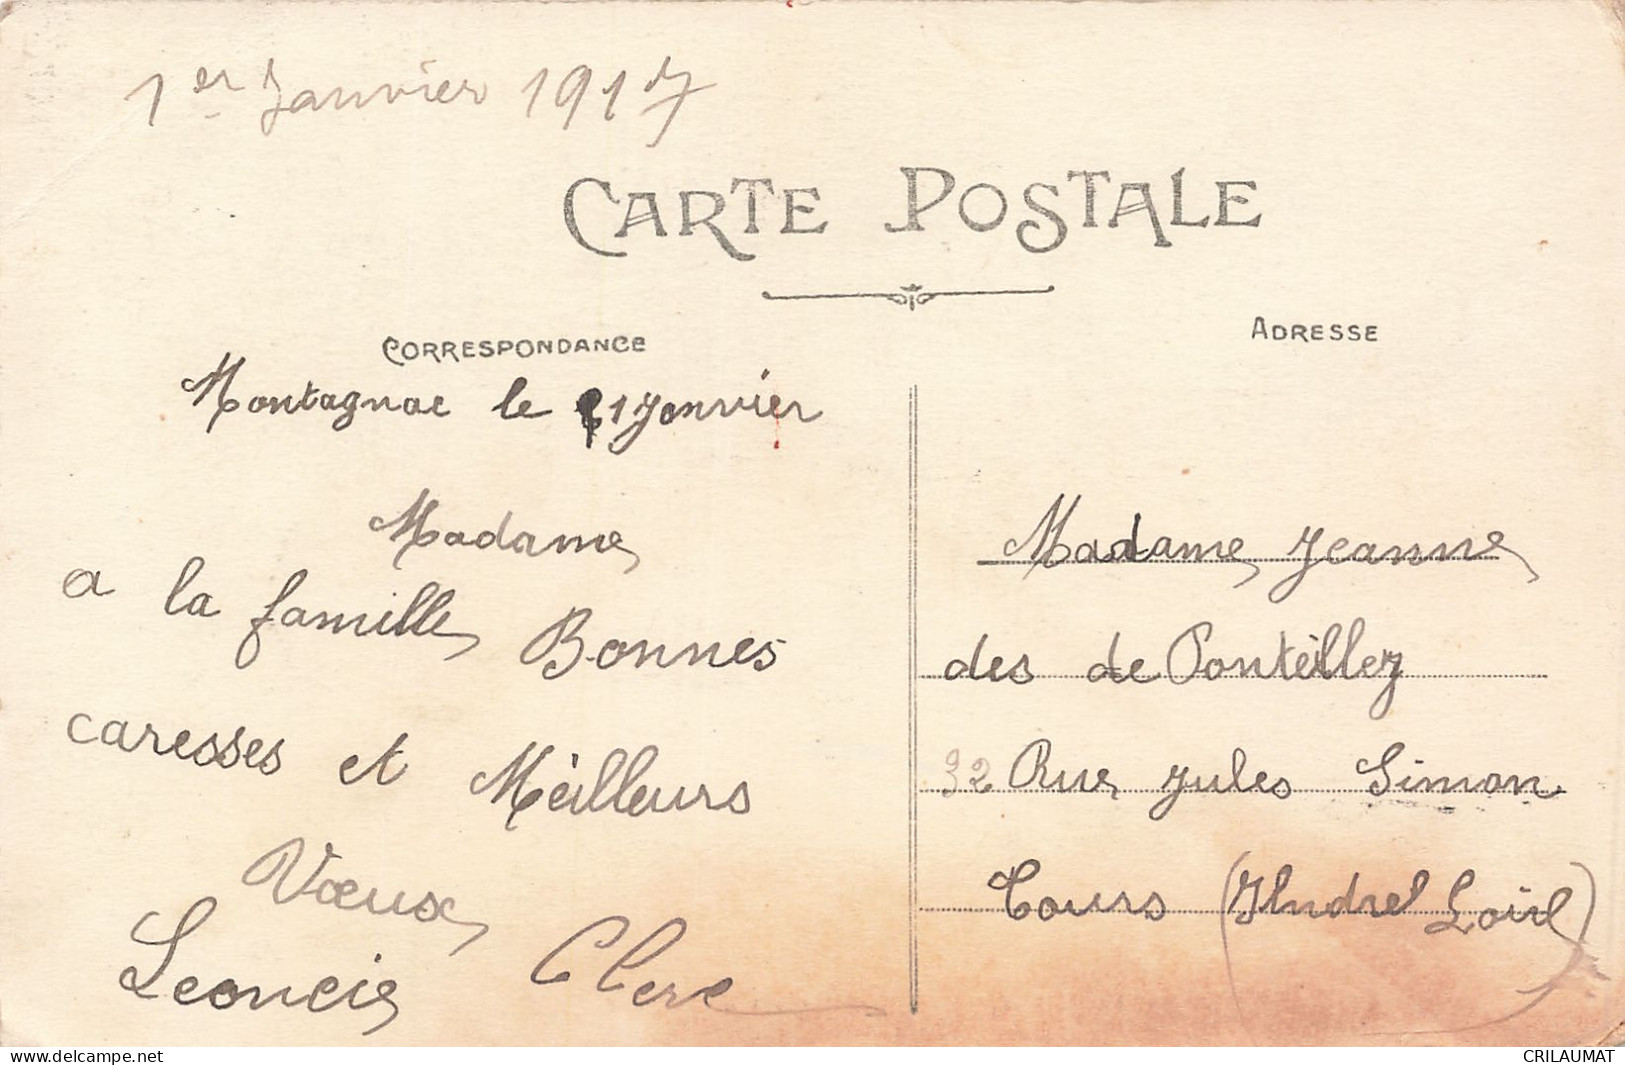 1er Janvier 1917
CARTE POSTALE
CORRESPONDANCE
ADRESSE
Montagnac le 1 Janvier
Madame
a la famille Bonnes
caresses et Meilleurs
Voeux
Leoncie Clerc
Madame Jeanne
des de Ponteillez
32 Rue Jules Simon
Tours (Indre Loire)
delcampe.net
CRILAUMAT